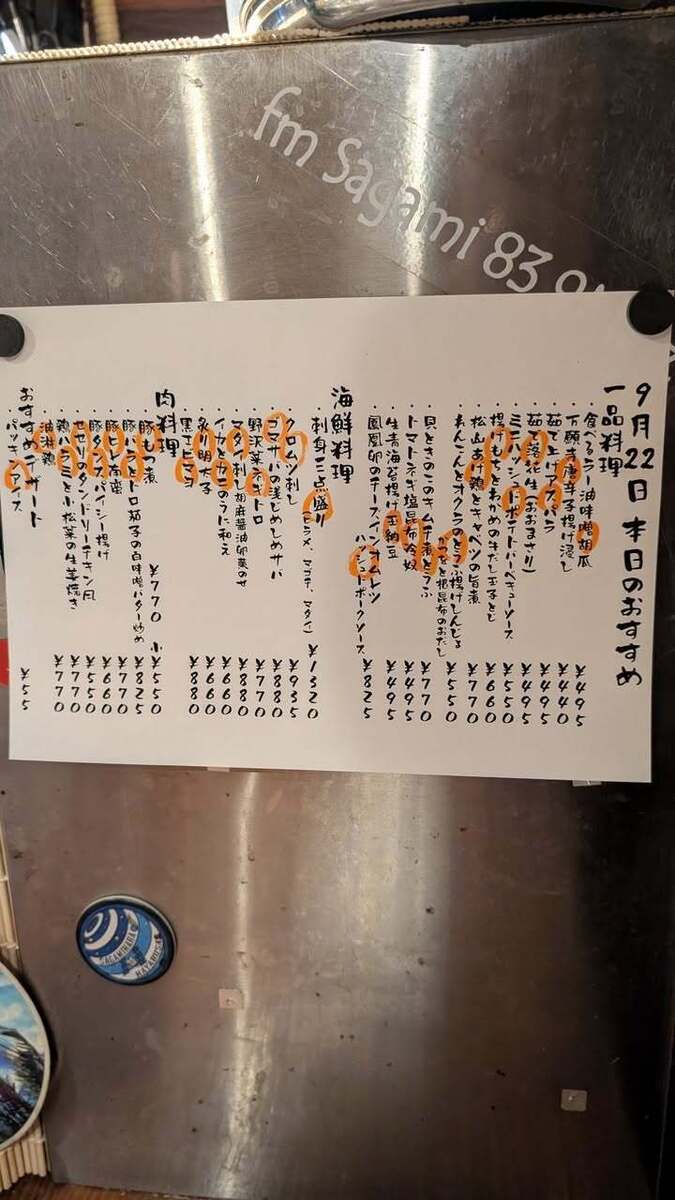 fm Sagami 83.9
9月22日 本日のおすすめ
一品料理
・食べるラー油味噌胡瓜 ¥495
・万願寺唐辛子揚げ浸し ¥440
・茹で上げアスパラ ¥440
・茹で落花生(おおまさり) ¥495
・ミニハッシュドポテトバーベキューソース ¥550
・揚げもちとわかめの牛だし玉子とじ ¥660
・松山あげ鶏とキャベツの旨煮 ¥770
・れんこんとオクラのとうふ揚げしんじょう
かつをと根昆布のおだし ¥550
・貝ときのこのキムチ煮とうふ ¥770
・トマトネギ塩昆布冷奴 ¥495
・生青海苔揚げ玉納豆 ¥495
・鳳凰卵のチーズインオムレツ
ハッシュドポークソース ¥825
海鮮料理
・刺身三点盛り(ヒラメ、マゴチ、マダイ) ¥1320
・クロムツ刺し ¥935
・ゴマサバの浅じめしめサバ ¥880
・野沢菜ネギトロ ¥770
・マダイ刺 胡麻醤油卵黄のせ ¥880
・イカとホタテのうに和え ¥660
・炙り明太子 ¥660
・黒エビマヨ ¥880
肉料理
・豚もつ煮 ¥770 小¥550
・豚バラとトロ茄子の白味噌バター炒め ¥825
・豚ヒレ南蛮 ¥770
・豚タンスパイシー揚げ ¥660
・セセリのタンドリーチキン風 ¥550
・鶏ハラミと小松菜の生姜焼き ¥770
・油淋鶏 ¥770
おすすめデザート
・パッキンアイス ¥55
SAGAMIHARA
HAYABUSA